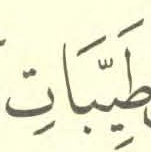 طَيِّبَاتِ